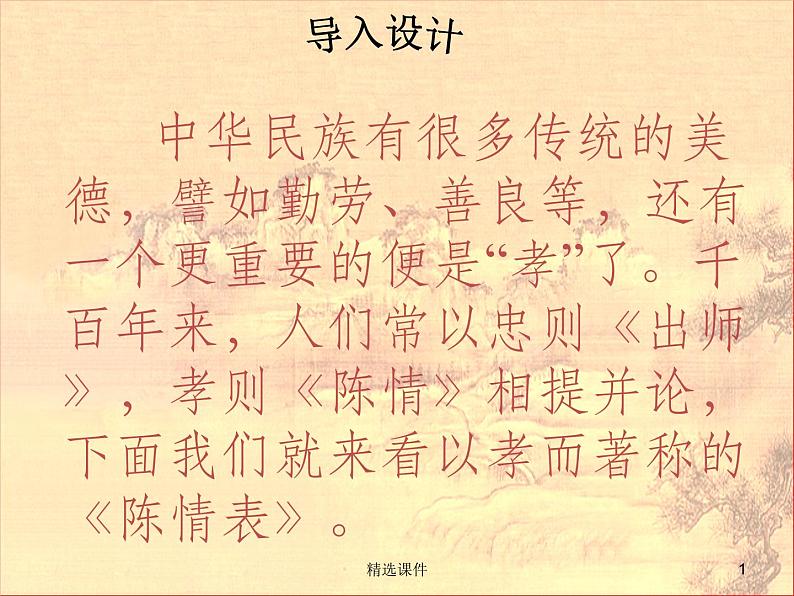 导入设计
中华民族有很多传统的美
德，譬如勤劳、善良等，还有
一个更重要的便是“孝”了。千
百年来，人们常以忠则《出师
》，孝则《陈情》相提并论，
下面我们就来看以孝而著称的
《陈情表》。
精选课件
1